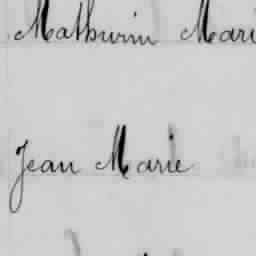 Mathurin Mari
Jean Marie